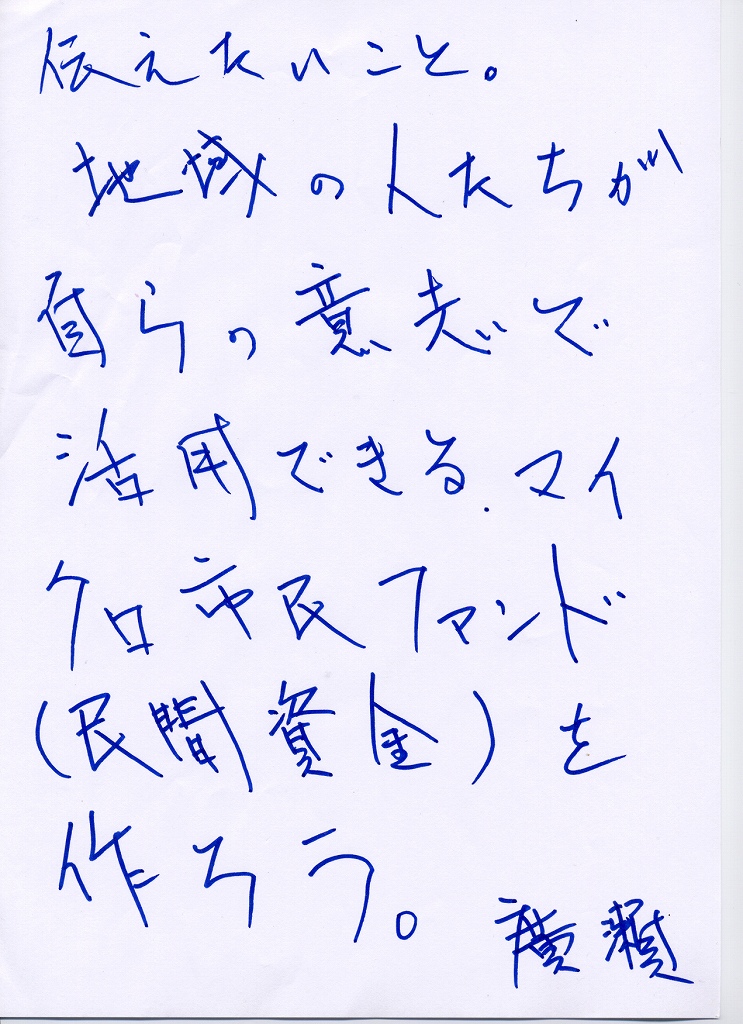 伝えたいこと。
地域の人たちが
自らの意志で
活用できる、マイ
クロ市民ファンド
(民間資金)を
作ろう。
廣瀬